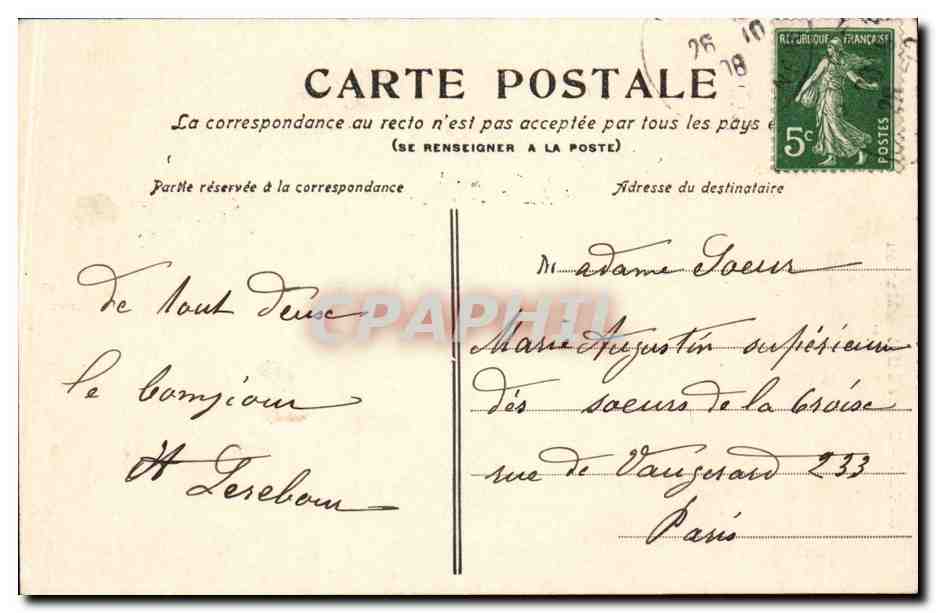 26 10
08
RÉPUBLIQUE FRANÇAISE
5c
POSTES
CARTE POSTALE
La correspondance au recto n'est pas acceptée par tous les pays é
(SE RENSEIGNER A LA POSTE)
Partie réservée à la correspondance
Adresse du destinataire
de tout deux
le bomjiour
A Lerebour
Madame Soeur
Marie Augustin supérieur
dés soeurs de la Croise
rue de Vaugerard 233
Paris
CPAPHIL